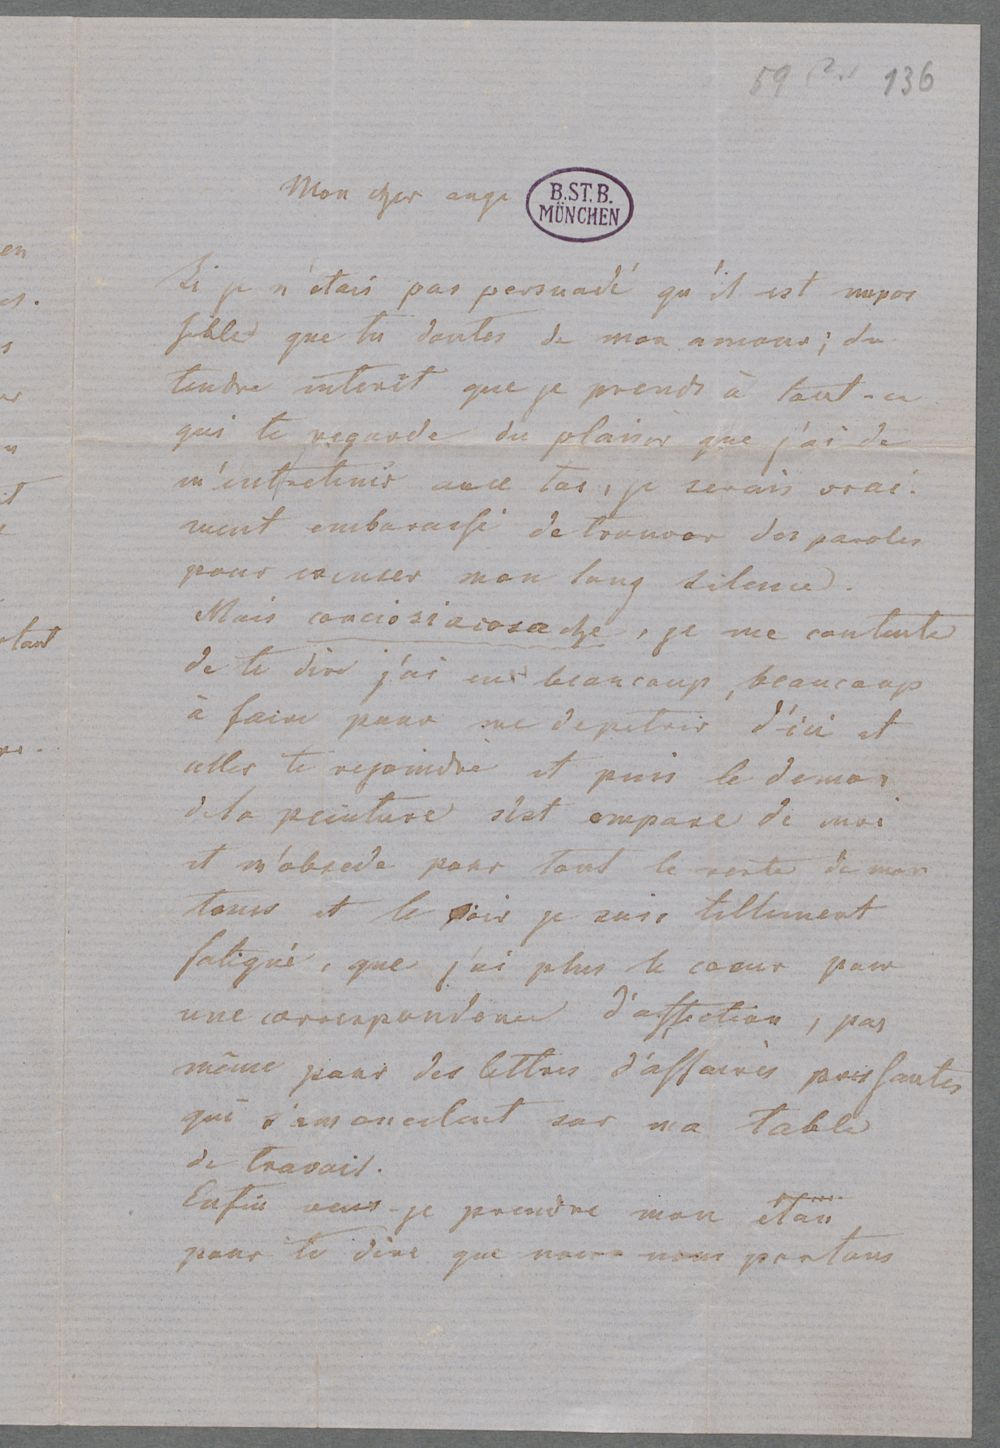 59 (2.) 136
Mon cher ange
B.ST.B.
MÜNCHEN
en
Si je n'étais pas persuadé qu'il est impos
sible que tu doutes de mon amour; du
tendre interêt que je prends à tout-ce
qui te regarde du plaisir que j'ai de
m'entretenir avec toi, je serais vrai-
ment embarassé de trouver des paroles
pour excuser mon long silence.
Mais conciosiacosache, je me contente
de te dire j'ai eu beaucoup, beaucoup
à faire pour me depetrir d'ici et
aller te rejoindre et puis le demon
de la peinture s'est emparé de moi
et m'obsede pour tout le reste de mon
tems et le soir je suis tellement
fatigué, que j'ai plus le coeur pour
une correspondence d'affection, pas
même pour des lettres d'affaires pressantes
qui s'amoncelent sur ma table
de travail.
Enfin veux-je prendre mon élan
pour te dire que nous nous portons